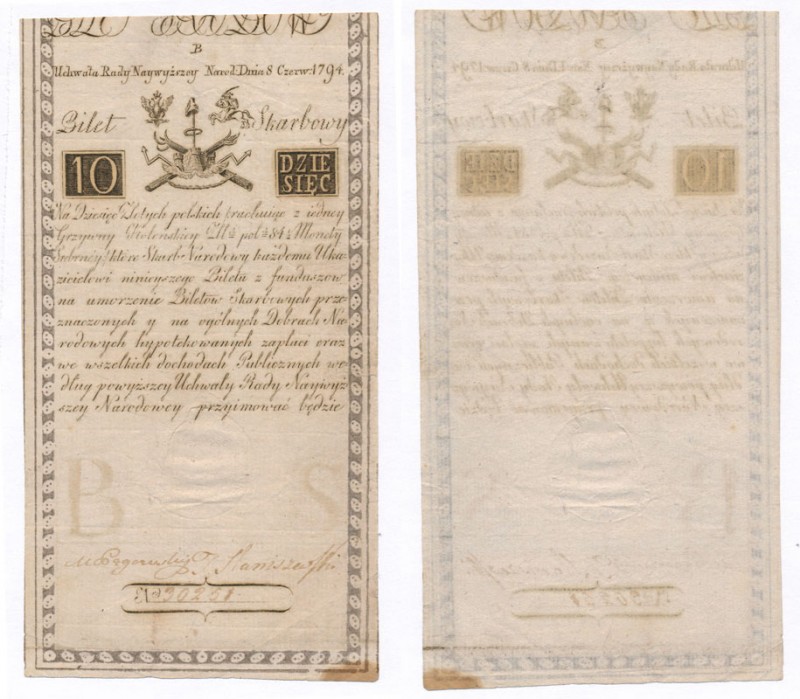 B
Uchwała Rady Naywyższey Narod: Dnia 8 Czerw: 1794.
Bilet Skarbowy
10 DZIE
SIĘC
Na Dziesięc Złotych polskich rachuiąc z iedney
Grzywny Kolońskiey
pol: 84½ Monety
Srebrney, które Skarb Narodowy każdemu Oka-
zicielowi ninieyszego Biletu z funduszow
na umorzenie Biletów Skarbowych prze-
znaczonych y na ogólnych Dobrach Na-
rodowych hypotekowanych zapłaci oraz
we wszelkich dochodach Publicznych we-
dług powyższey Uchwały Rady Naywyż-
szey Narodowey przyimować będzie
B 2
Staniszewski
No 30251